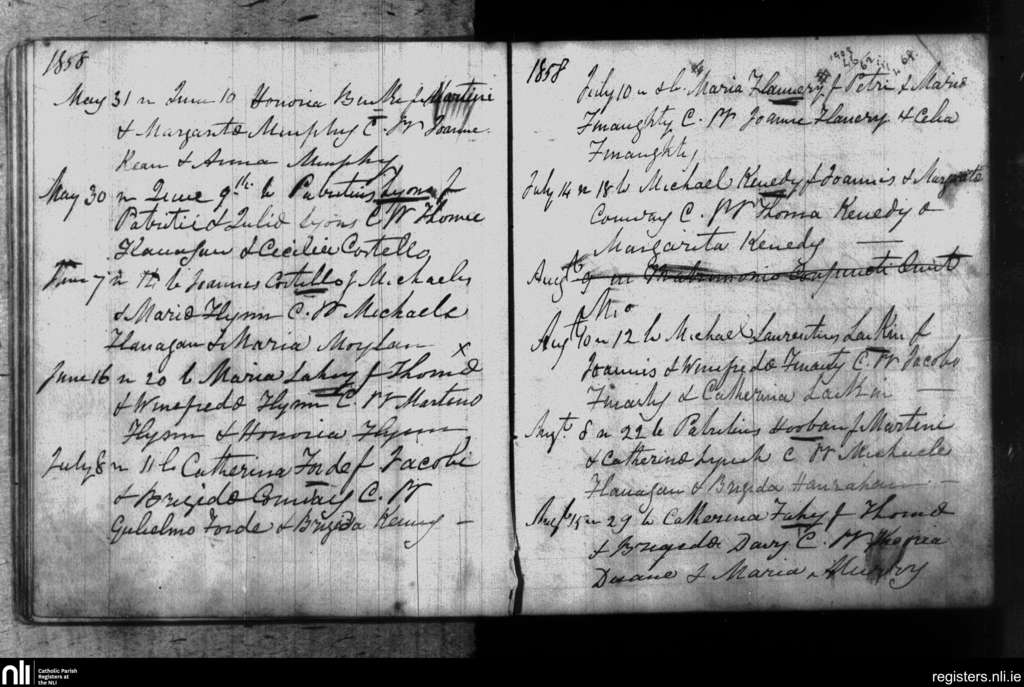 1858
May 31 n June 10 Honoria Burke f Martini
& Margaritæ Murphy C. PP Joanne
Kean & Anna Murphy
May 30 n June 9th b Patritius Lyons f
Patritii & Julia Lyons C PP Thoma
Flanagan & Cecilia Costello
June 7 n b Joannes Costello f Michaelis
& Maria Flynn C. PP Michaele
Flanagan & Maria Moylan x
June 16 n 20 b Maria Lahey f Thomæ
& Winefredæ Flynn C. PP Martino
Flynn & Honoria Flynn
July 8 n 11 b Catherina Forde f Jacobi
& Brigidæ Conway C. PP
Gulielmo Forde & Brigida Kenny —
1858
July 10 n & b Maria Flannery f Petri & Mariæ
Finaughty C. PP Joanne Flanery & Celia
Finaughty
July 14 n 18 b Michael Kenedy f Joannis & Margarita
Conway C. PP Thoma Kenedy &
Margarita Kenedy —
Augt 9 in Matrimonio Conjuncti Sunt
Augt 10 n 12 b Michael Laurentius Larkin f
Joannis & Winefredæ Finarty C. PP Jacobo
Finarty & Catherina Larkin —
Augt. 8 n 22 b Patritius Hooban f Martini
& Catherinæ Lynch C PP Michaele
Flanagan & Brigida Hanrahan —
Augt 15 n 29 b Catherina Fahey f Thomæ
& Brigidæ Davy C. PP
Duane & Maria
nli Catholic Parish
Registers at
the NLI
registers.nli.ie